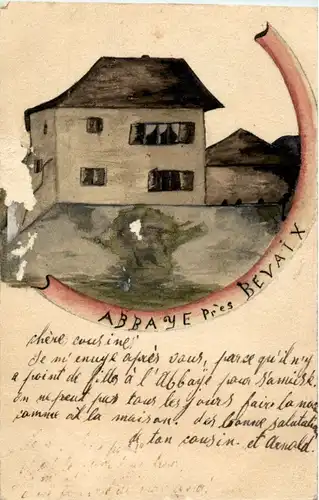 ABBAYE Près BEVAIX
chère cousine
Je m'enuye après vous, parce qu'il n'y
a point de filles à l'Abbaÿe pour s'amuser.
on ne peux pas tous les jours faire la noce
comme at la maison. des bonne salutation
de ton cousin. et Arnold.